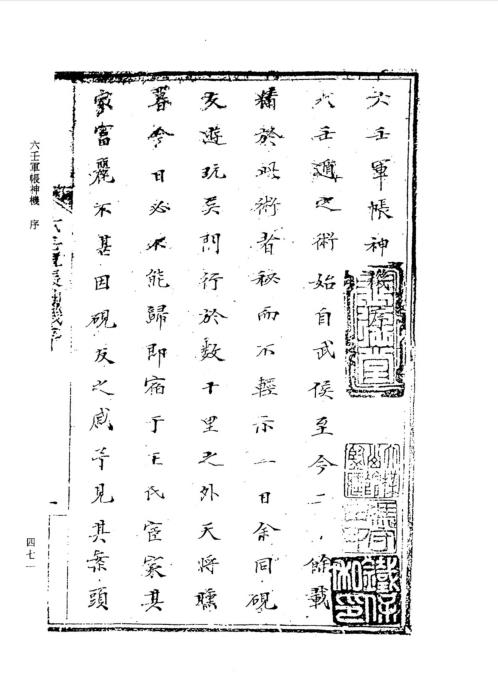 六壬軍帳神機序
六壬遁之術始自武侯至今二餘載
精於此術者秘而不輕示一日余同硯
友遊玩矣問行於數十里之外天將曛
暮今日必不能歸即宿于王氏宦家其
家富麗不甚因硯友之戚予見其案頭
六壬軍帳神機 序
四七一